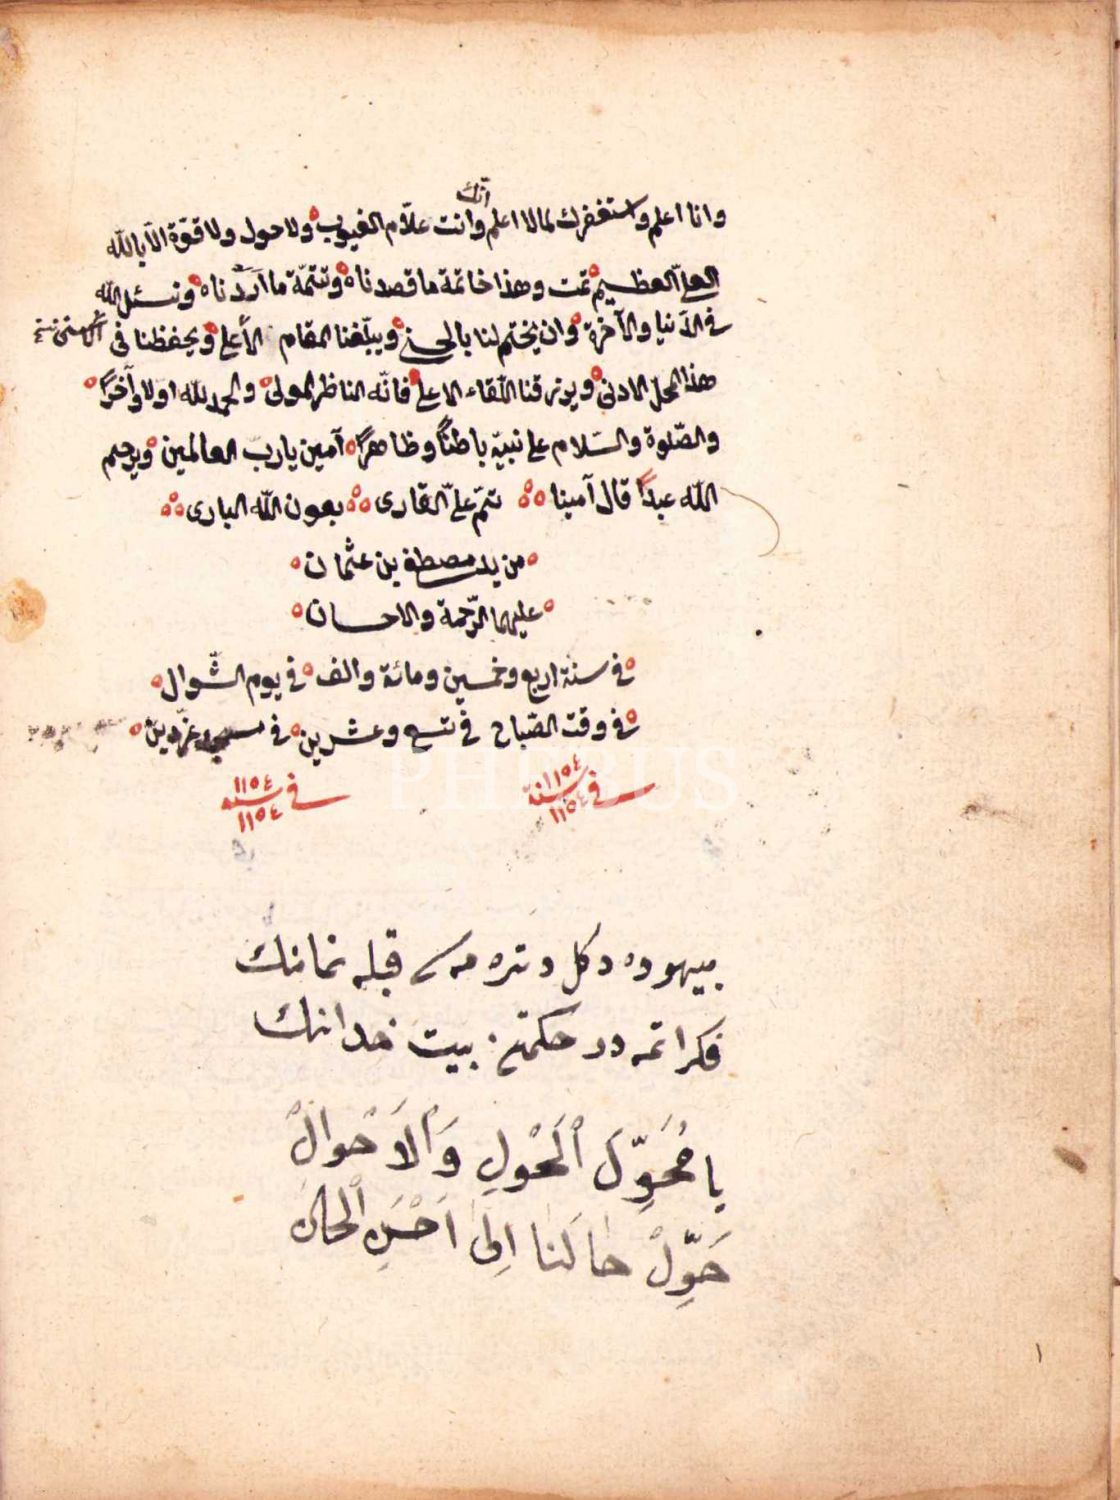 انك
وانا اعلم واستغفرك لما لا اعلم وانت علّام الغيوب ولا حول ولا قوّة الّا بالله
العليّ العظيم تمت وهذا خاتمة ما قصدناه وتتمّة ما اردناه ونسئل الله
في الدّنيا والآخرة وان يختم لنا بالحسنى ويبلّغنا المقام الأعلى ويحفظنا في
هذا المحلّ الادنى ويرزقنا اللّقاء الاعلى فانّه الناظر المولى والحمد لله اولا وآخرًا
والصّلوة والسّلام على نبيّه باطنًا وظاهرًا آمين يا ربّ العالمين ويرحم
اللّه عبدًا قال آمينا تمّ عليّ القارى بعون اللّه البارى
من يد مصطفى بن عثمان
عليهما الرّحمة والاحسان
في سنة اربع وخمسين ومائة والف في يوم الشّوال
في وقت الصّباح في تسع وعشرين في
في سنة ١١٥٤
١١٥٤
في سنة ١١٥٤
١١٥٤
PHEBUS
بيهوده دكل دتره مه قبله نمانك
فكر اتمه در حكمتى بيت خدانك
يا مُحَوِّلَ ٱلْحَوْلِ وَٱلْاَحْوالْ
حَوِّلْ حالَنا اِلىٰ اَحْسَنِ ٱلْحالْ